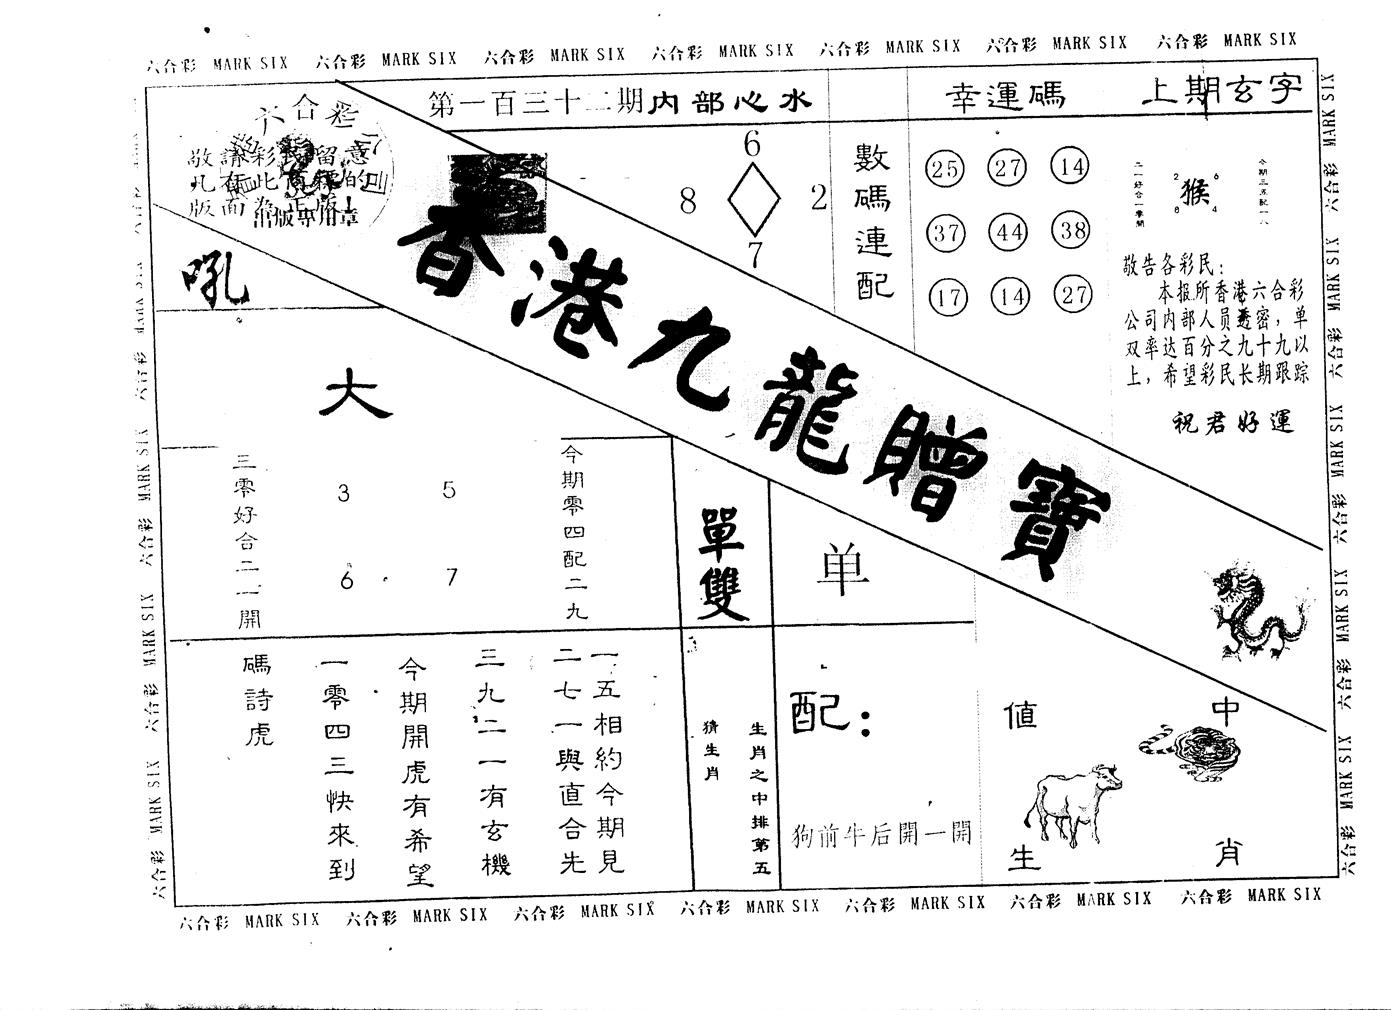 六合彩 MARK SIX 六合彩 MARK SIX 六合彩 MARK SIX 六合彩 MARK SIX 六合彩 MARK SIX 六合彩 MARK SIX 六合彩 MARK SIX
第一百三十二期内部心水
幸運碼
上期玄字
六合彩
敬請彩民留意
版面為正版!
出版專用章
吼
香港九龍贈寶
6
8
2
7
數碼連配
25 27 14
37 44 38
17 14 27
二一好合一零開
2 6
猴
8 4
敬告各彩民:
本报所香港六合彩
公司内部人员透密,单
双率达百分之九十九以
上,希望彩民长期跟踪
祝君好運
大
三零好合二一開
3 5
6 7
今期零四配二九
單雙
单
碼詩虎
一零四三快來到
今期開虎有希望
三九二一有玄機
二七一與直合先
一五相約今期見
猜生肖
生肖之中排第五
配:
狗前牛后開一開
值
中
生
肖
六合彩 MARK SIX 六合彩 MARK SIX 六合彩 MARK SIX 六合彩 MARK SIX 六合彩 MARK SIX 六合彩 MARK SIX 六合彩 MARK SIX